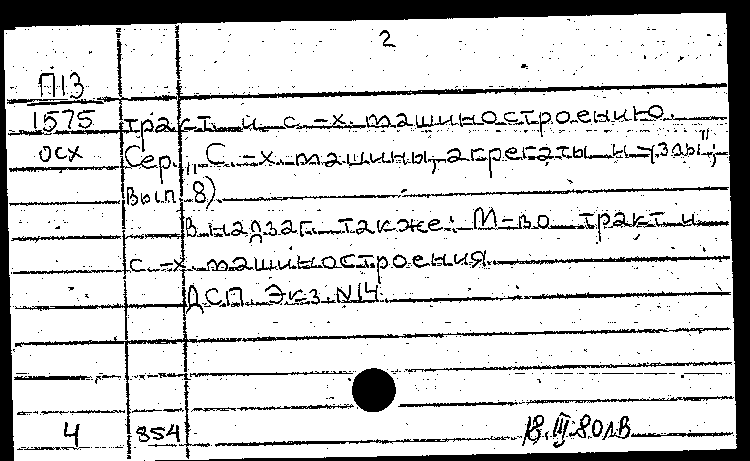 2
П13
1575 тракт. и с.-х. машиностроению.
осх Сер. „С.-х. машины, агрегаты и узлы";
вып. 8).
В надзаг. также: М-во тракт. и
с.-х. машиностроения
ДСП. Экз. N14
4 854 18.III.80